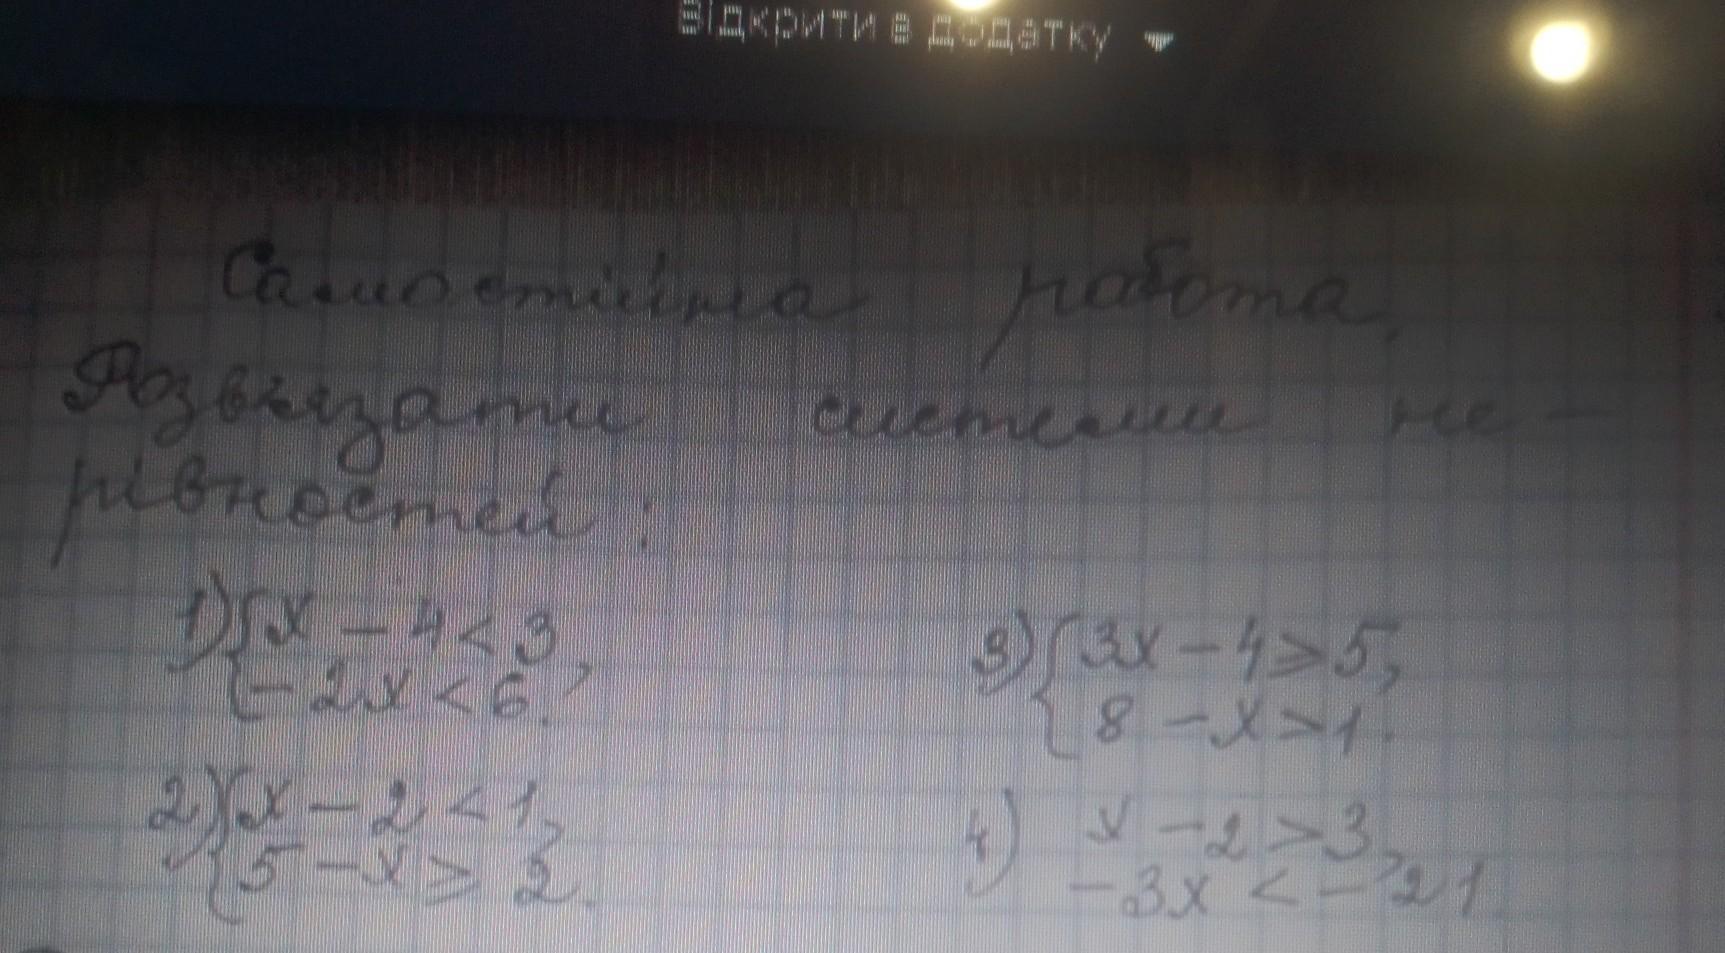 Відкрити в додатку
Самостійна робота.
Розвязати системи не-
рівностей:
1) { x - 4 < 3,
- 2x < 6.
2) { x - 2 < 1,
5 - x ⩾ 2.
3) { 3x - 4 ⩾ 5,
8 - x > 1.
4) x - 2 > 3,
- 3x < - 21